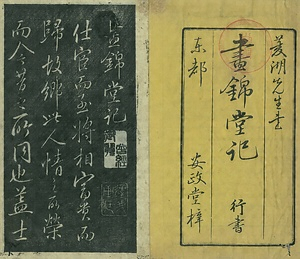 菱湖先生書
晝錦堂記 行書
東都 安政堂梓
晝錦堂記
仕宦而至將相富貴而
歸故鄉此人情之所榮
而今昔之所同也蓋士